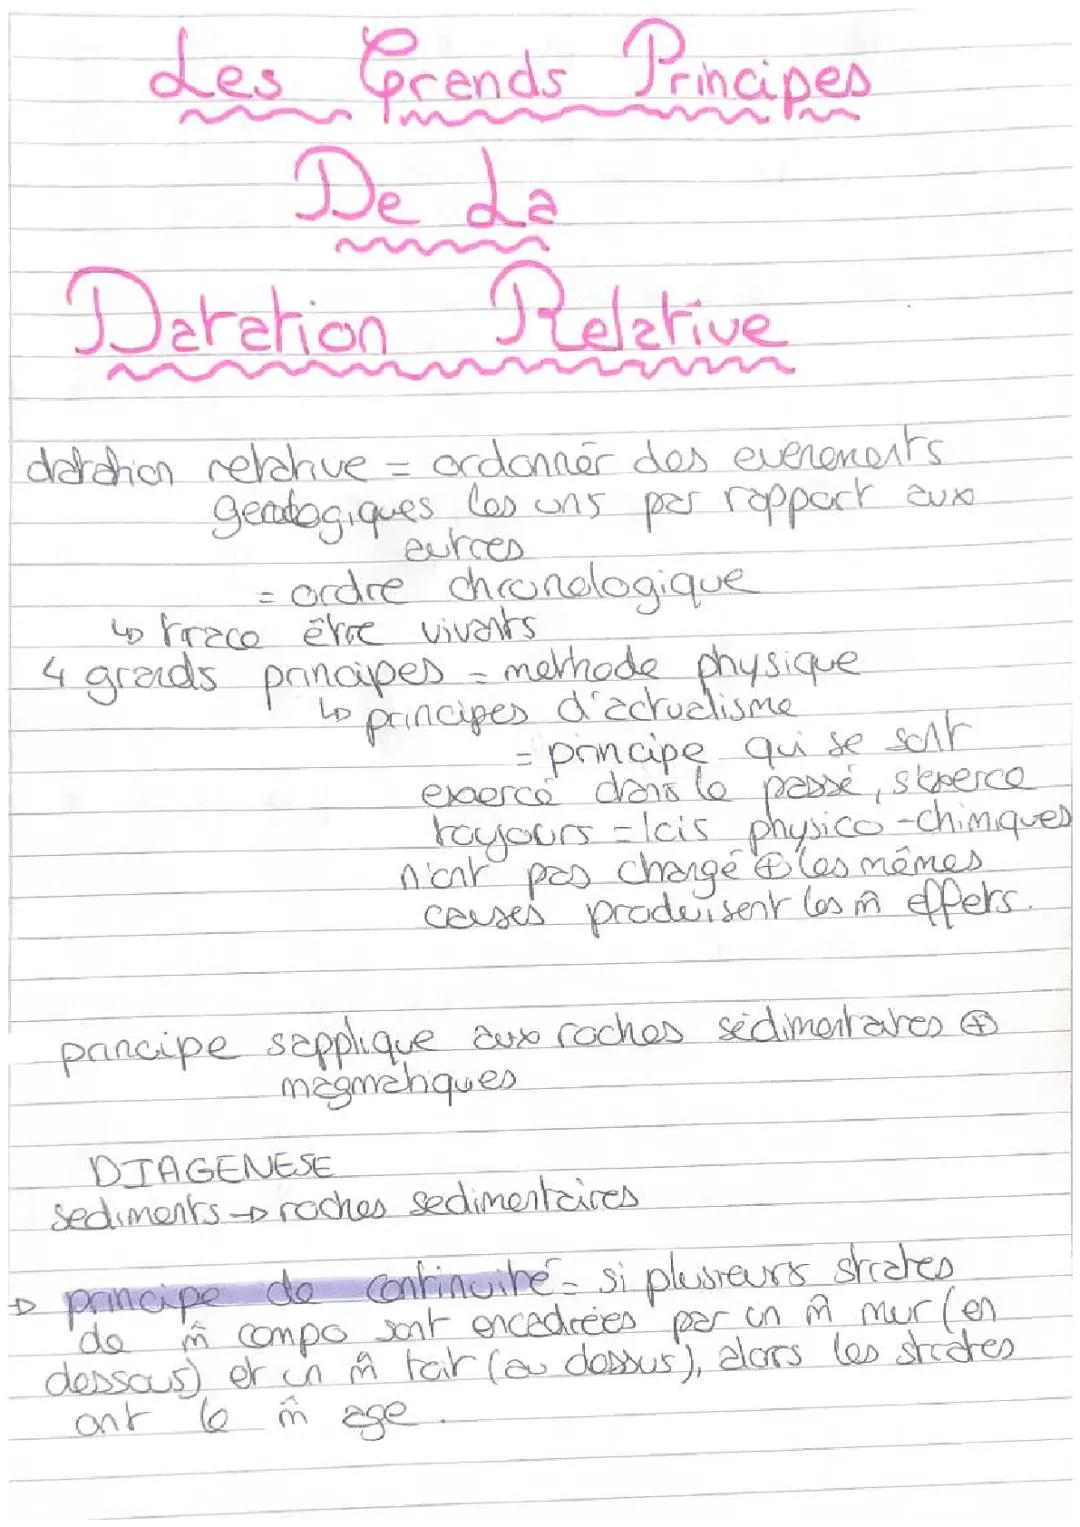 Les Grands Principes
De La
Datation Relative
datation relative = ordonner des evenements
geologiques les uns par rapport aux
autres
= ordre chronologique
↳ trace être vivants
4 grands principes = methode physique
↳ principes d'actualisme
= principe qui se sont
exercé dans le passé, s'exerce
toujours = lois physico-chimiques
n'ont pas changé ⊕ les mêmes
causes produisent les m̂ effets.
principe s'applique aux roches sédimentaires ⊕
magmatiques
DIAGENESE
sediments → roches sedimentaires
→ principe de continuité = si plusieurs strates
de m̂ compo sont encadrées par un m̂ mur (en
dessous) et un m̂ toit (au dessus), alors les strates
ont le m̂ age.